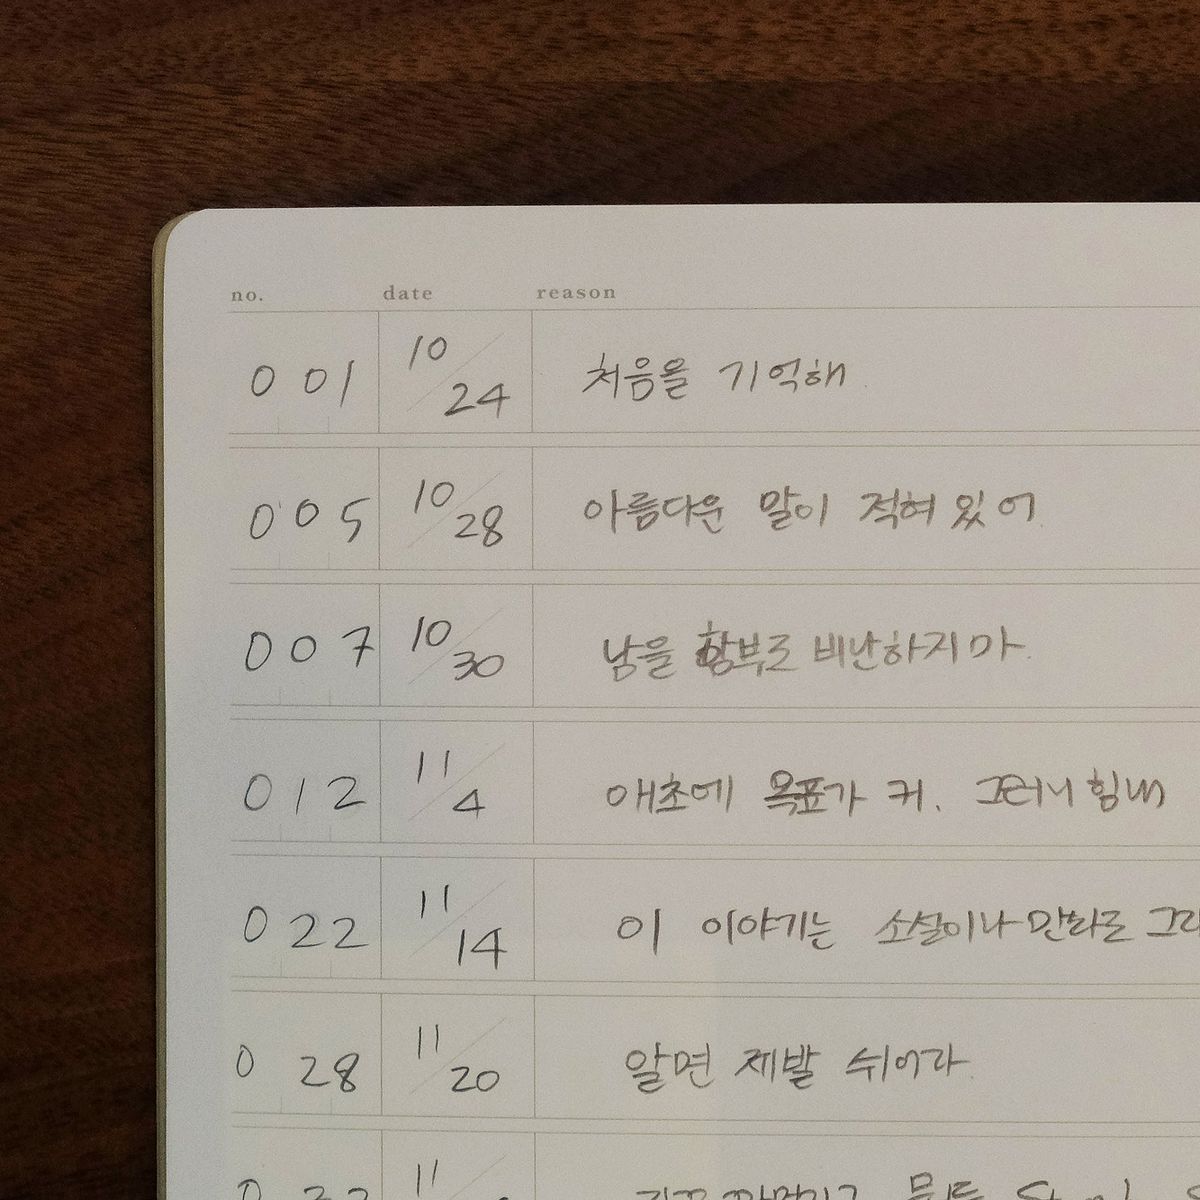 no. date reason
001 10/24 처음을 기억해
005 10/28 아름다운 말이 적혀있어
007 10/30 남을 함부로 비난하지마
012 11/4 애초에 목표가 커. 그러니 힘내
022 11/14 이 이야기는 소설이나 만화로 그리
028 11/20 알면 제발 쉬어라
11